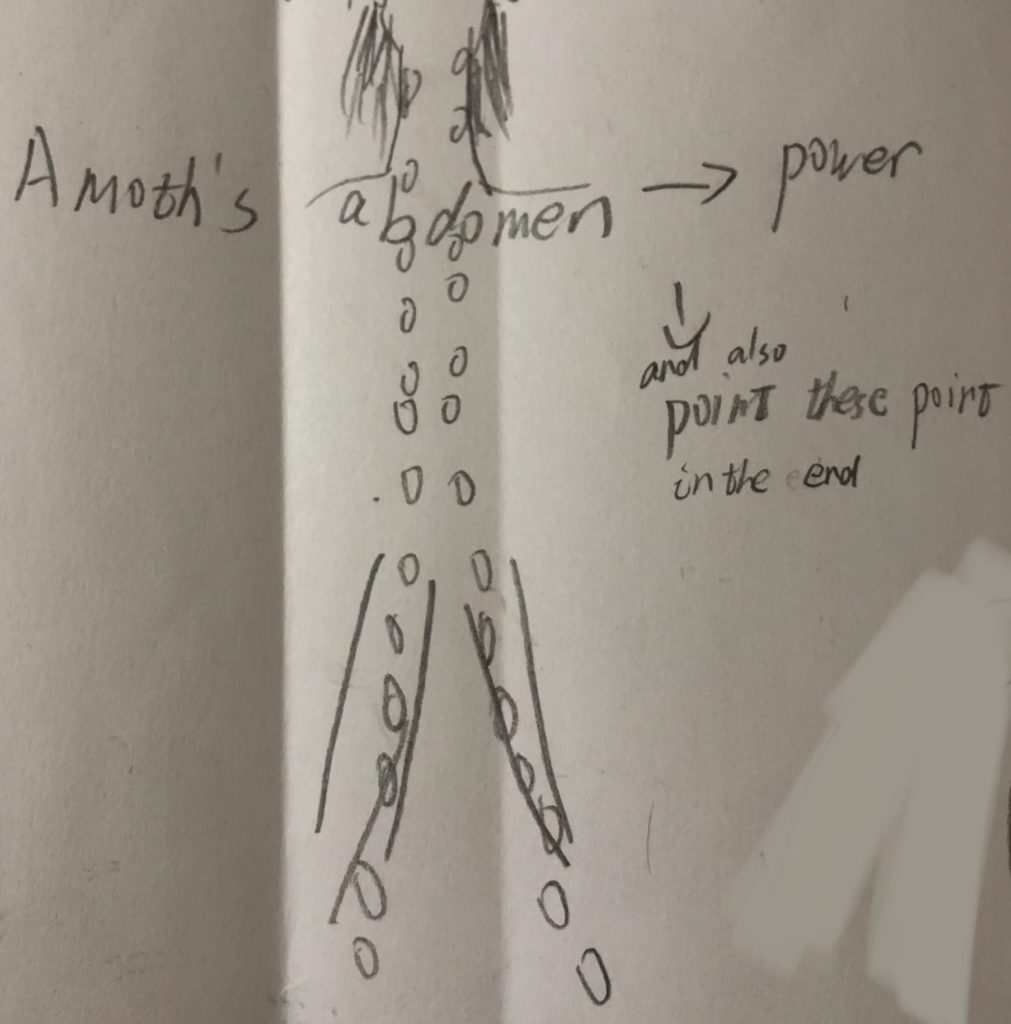 A moth's abdomen → power
↓
and also
point these point
in the end